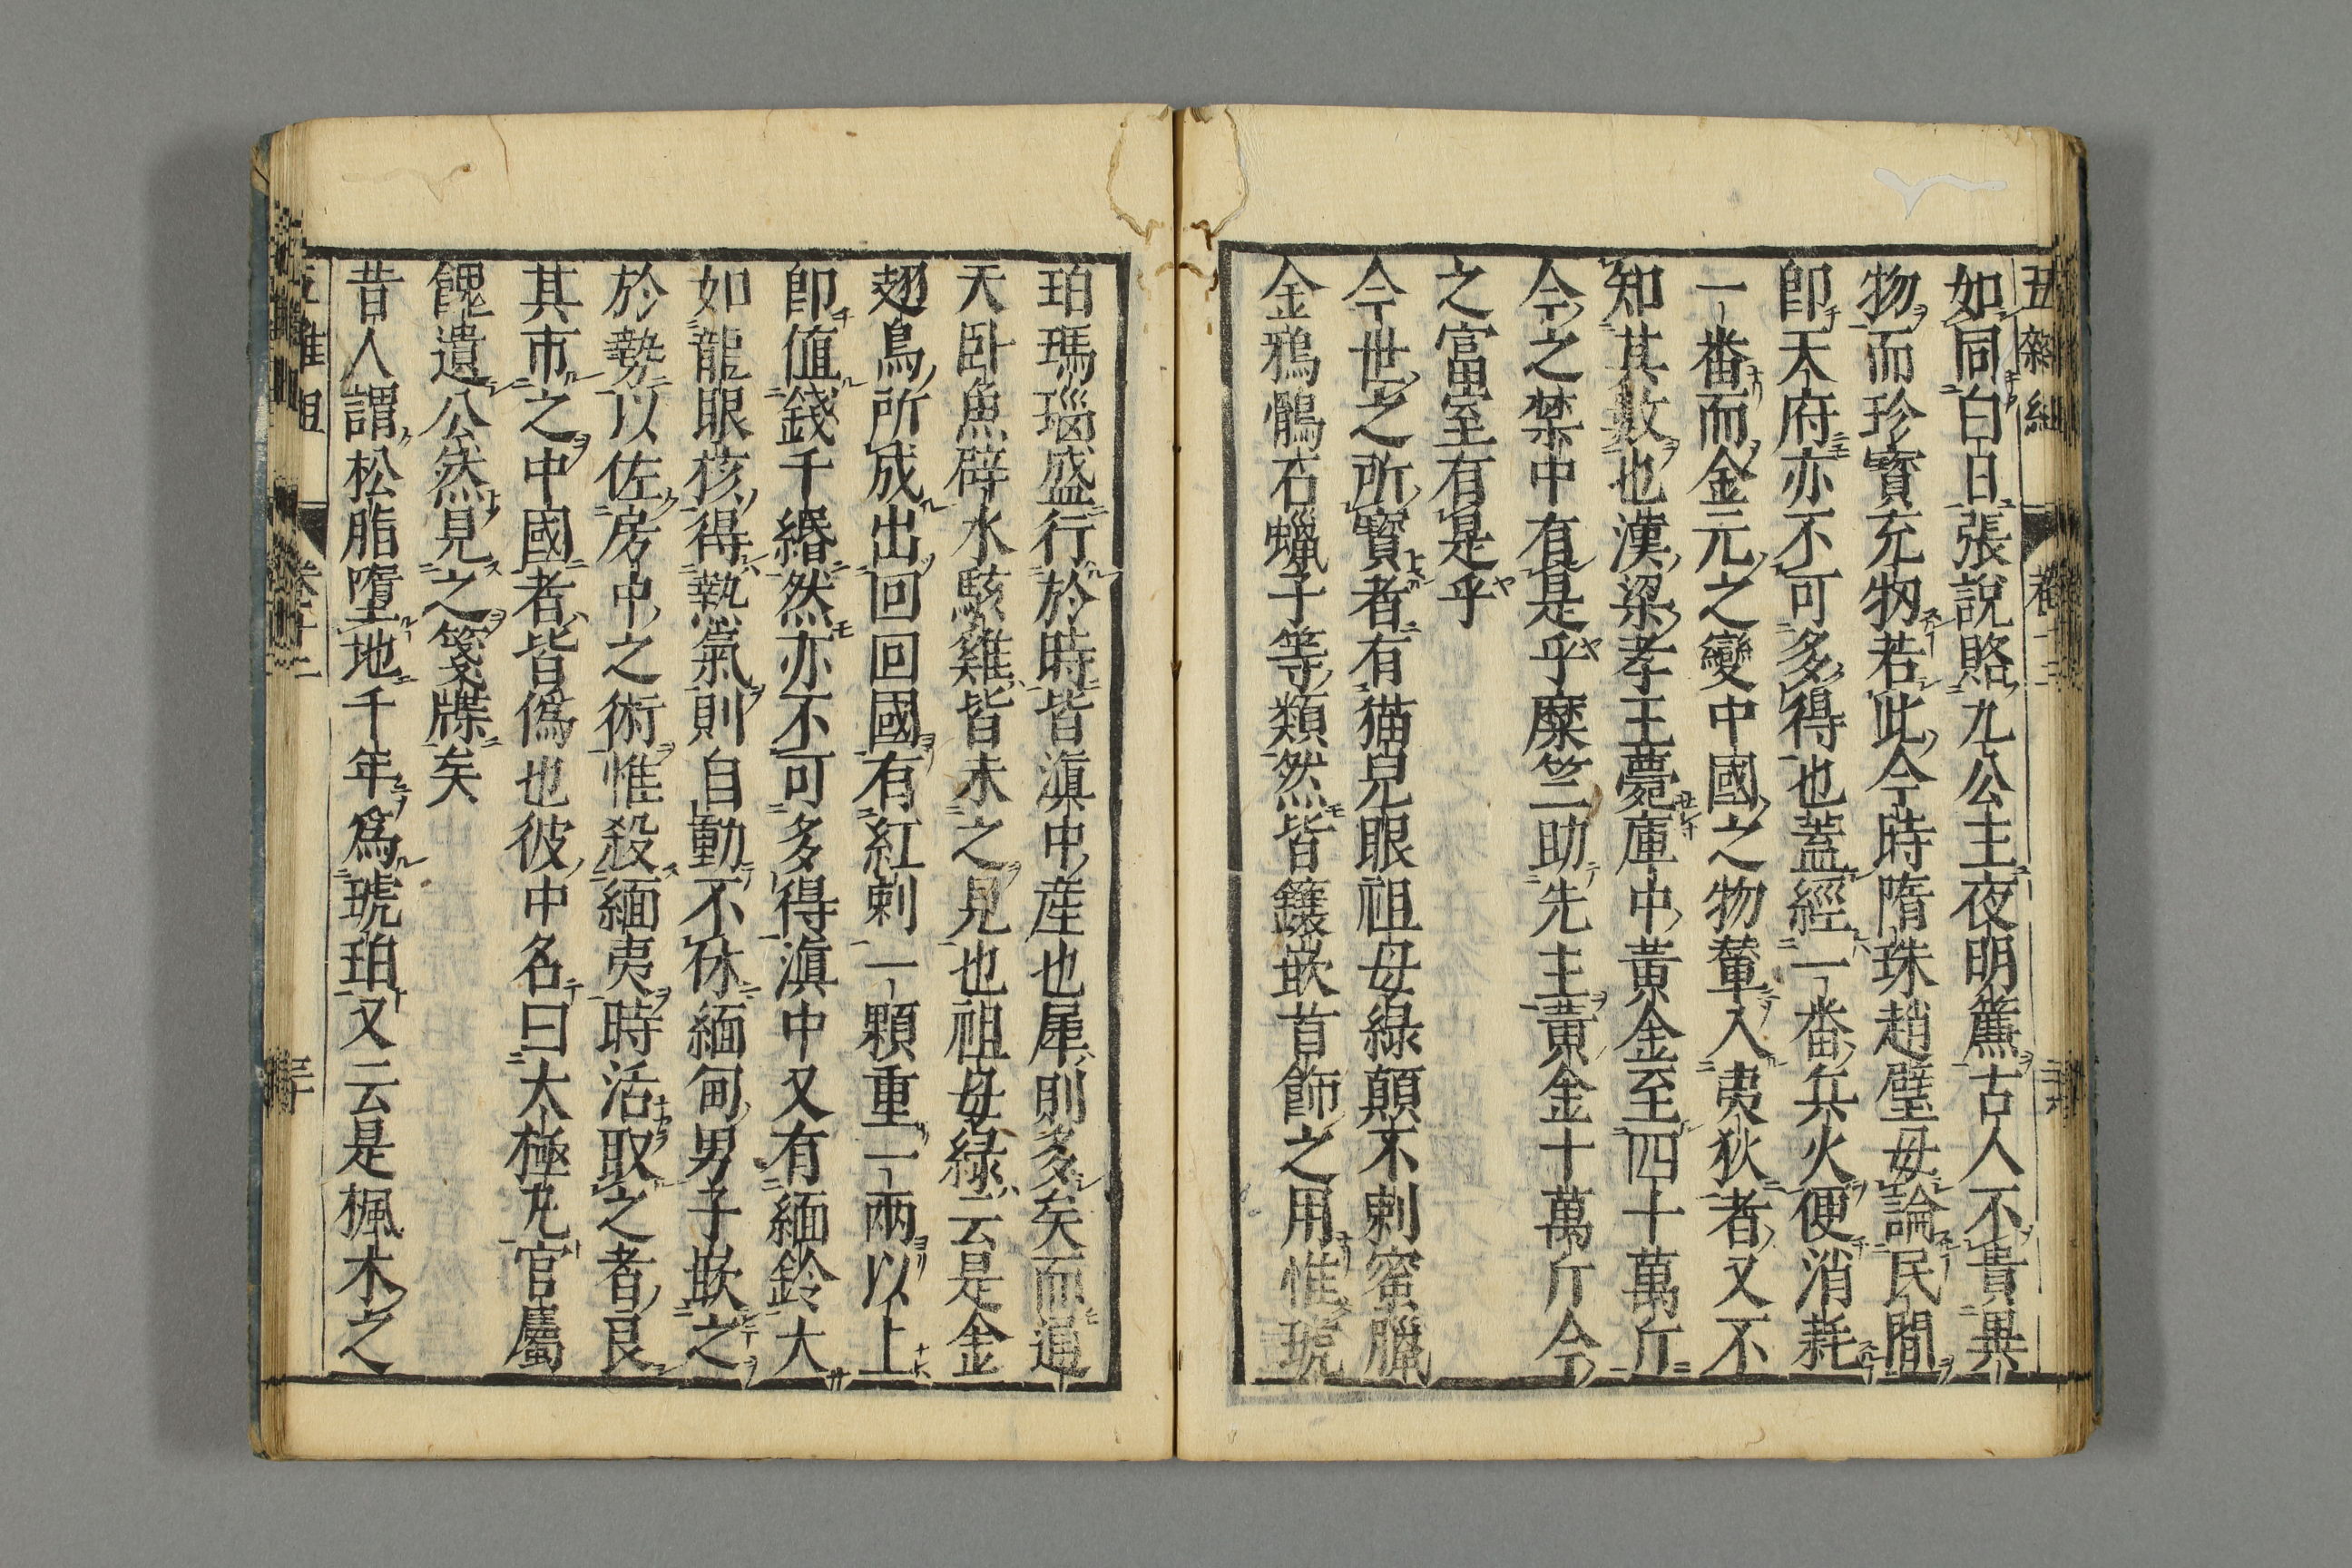 如同白日張說賂九公主夜明簾古人不貴異
物而珍寶充牣若此今時隋珠趙璧毋論民間
卽天府亦不可多得也蓋經一番兵火便消耗
一番而金元之變中國之物輦入夷狄者又不
知其數也漢梁孝王薨庫中黃金至四十萬斤
今之禁中有是乎糜竺助先主黃金十萬斤今
之富室有是乎
今世之所寶者有猫兒眼祖母綠顛不剌蜜臘
金鴉鶻石蠟子等類然皆鑲嵌首飾之用惟琥
珀瑪瑙盛行於時皆滇中產也犀則多矣而通
天臥魚辟水駭雞皆未之見也祖母綠云是金
翅鳥所成出回回國有紅剌一顆重一兩以上
卽値錢千緡然亦不可多得滇中又有緬鈴大
如龍眼核得熱氣則自動不休緬甸男子嵌之
於勢以佐房中之術惟殺緬夷時活取之者良
其市之中國者皆僞也彼中名曰太極丸官屬
餽遺公然見之箋牒矣
昔人謂松脂墮地千年爲琥珀又云是楓木之